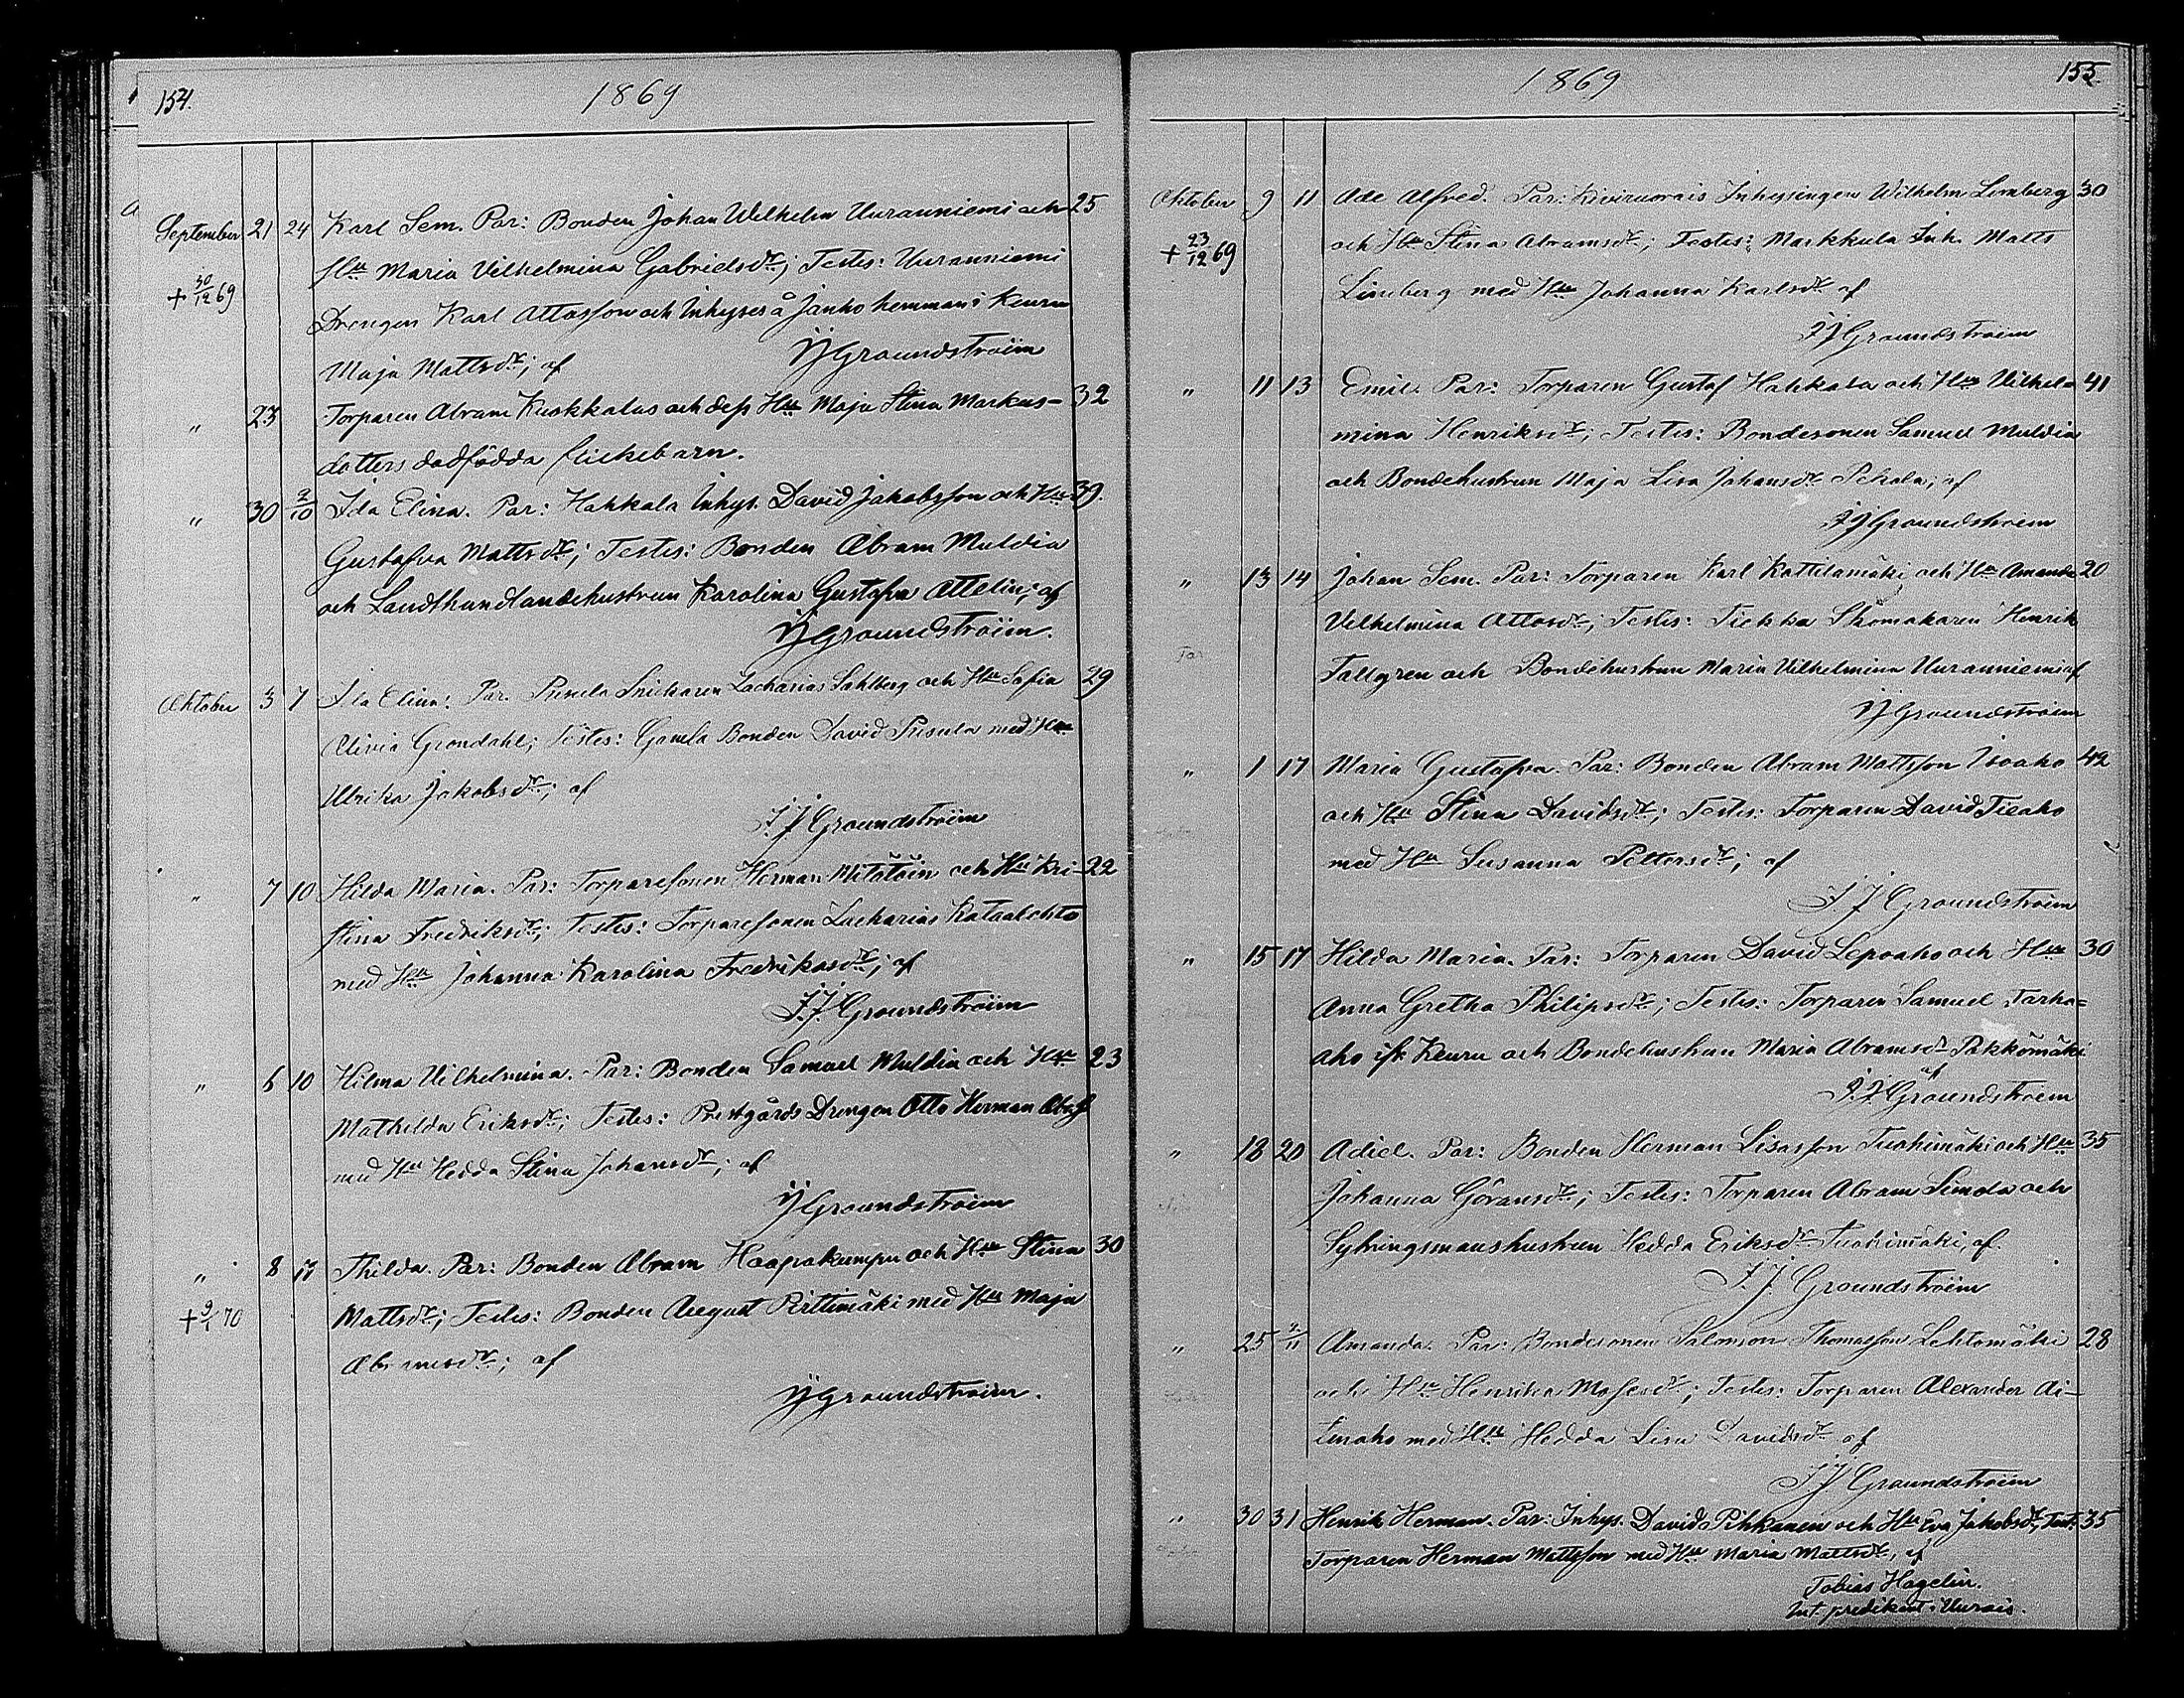 154. 1869
September 21 24 Karl Sem. Par: Bonden Johan Wilhelm Uurauniemi och 25
Hu Maria Vilhelmina Gabrielsdr; Testes: Uurauniemi
+ 30/12 69
Drengen Karl Attosson och Inhyses å Janho hemman i Keuru
Maja Mattsdr; af JJGroundstroëm
" 23 Torparen Abram Kuokkalas och dess Hu Maja Stina Markus- 32
dotters dödfödda flickebarn.
" 30 2/10 Ida Elina. Par: Hakkala Inhys. David Jakobsson och Hu 39
Gustafva Mattsdr; Testes: Bonden Abram Muldia
och Landthandlandehustrun Karolina Gustafva Attelin; af
JJGroundstroëm.
Oktober 3 7 Ida Elina: Par. Pusula Snickaren Zacharias Sahlberg och Hu Sofia 29
Olivia Grondahl; Testes: Gamla Bonden David Pusula med Hu
Ulrika Jakobsdr; af
J.J Groundstroëm
" 7 10 Hilda Maria. Par: Torparesonen Herman Mitätöin och Hu Kri- 22
stina Fredriksdr; Testes: Torparesonen Zacharias Kataalehto
med Hu Johanna Karolina Fredriksdr; af
J.J. Groundstroëm
" 6 10 Hilma Vilhelmina. Par: Bonden Samuel Muldia och Hu 23
Mathilda Eriksdr; Testes: Prestgårds Drengen Otto Herman Abr.s
med Hu Hedda Stina Johansdr; af
JJGroundstroëm
" 8 17 Thilda. Par: Bonden Abram Haapakumpu och Hu Stina 30
+ 9/1 70
Mattsdr; Testes: Bonden August Pirttimäki med Hu Maja
Abramsdr; af
JJGroundstroëm.
1869 155.
Oktober 9 11 Ade Alfred. Par: Kiviruorais Inhysingen Wilhelm Limberg 30
+ 23/12 69
och Hu Stina Abramsdr; Testes: Markkula Inh. Matts
Limberg med Hu Johanna Karlsdr af
JJGroundstroëm
" 11 13 Emil. Par: Torparen Gustaf Hakkala och Hu Vilhel- 41
mina Henriksdr; Testes: Bondesonen Samuel Muldia
och Bondehustrun Maja Lisa Johansdr Pekala; af
JJGroundstroëm
" 13 14 Johan Sem. Par: Torparen Karl Kattilamäki och Hu Amanda 20
Vilhelmina Attosdr; Testes: Tiekka Skomakaren Henrik
Tallgren och Bondehustrun Maria Vilhelmina Uurauniemi af
JJGroundstroëm
" 1 17 Maria Gustafva. Par: Bonden Abram Mattsson Isoaho 42
och Hu Stina Davidsdr; Testes: Torparen David Tieaho
med Hu Susanna Pettersdr; af
J.J Groundstroëm
" 15 17 Hilda Maria. Par: Torparen David Lepoaho och Hu 30
Anna Gretha Philipsdr; Testes: Torparen Samuel Tarha=
aho ifr. Keuru och Bondehustrun Maria Abramsdr Pakkömäki
af
J.J. Groundstroëm
" 18 20 Adiel. Par: Bonden Herman Lisasson Tuohimäki och Hu 35
Johanna Göransdr; Testes: Torparen Abram Simola och
Sytningsmanshustrun Hedda Eriksdr Tuohimäki, af.
J.J. Groundstroëm
" 25 2/11 Amanda. Par: Bondesonen Salomon Thomasson Lehtomäki 28
och Hu Henrika Mosesdr; Testes: Torparen Alexander Ai-
tinaho med Hu Hedda Lisa Davidsdr af
JJ Groundstroëm
" 30 31 Henrik Herman. Par: Inhys. David Pihkanen och Hu Eva Jakobsdr, Test: 35
Torparen Herman Mattsson med Hu Maria Mattsdr, af
Tobias Hagelin.
int. predikant i Uurais.